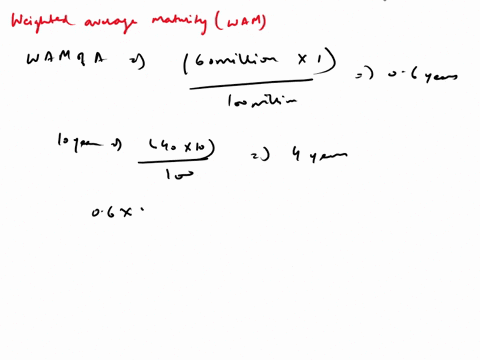 Weighted average maturity (WAM)
WAM of A => (60 million × 1) / 100 million => 0.6 years
10 year => (40 × 10) / 100 => 4 years
0.6 ×